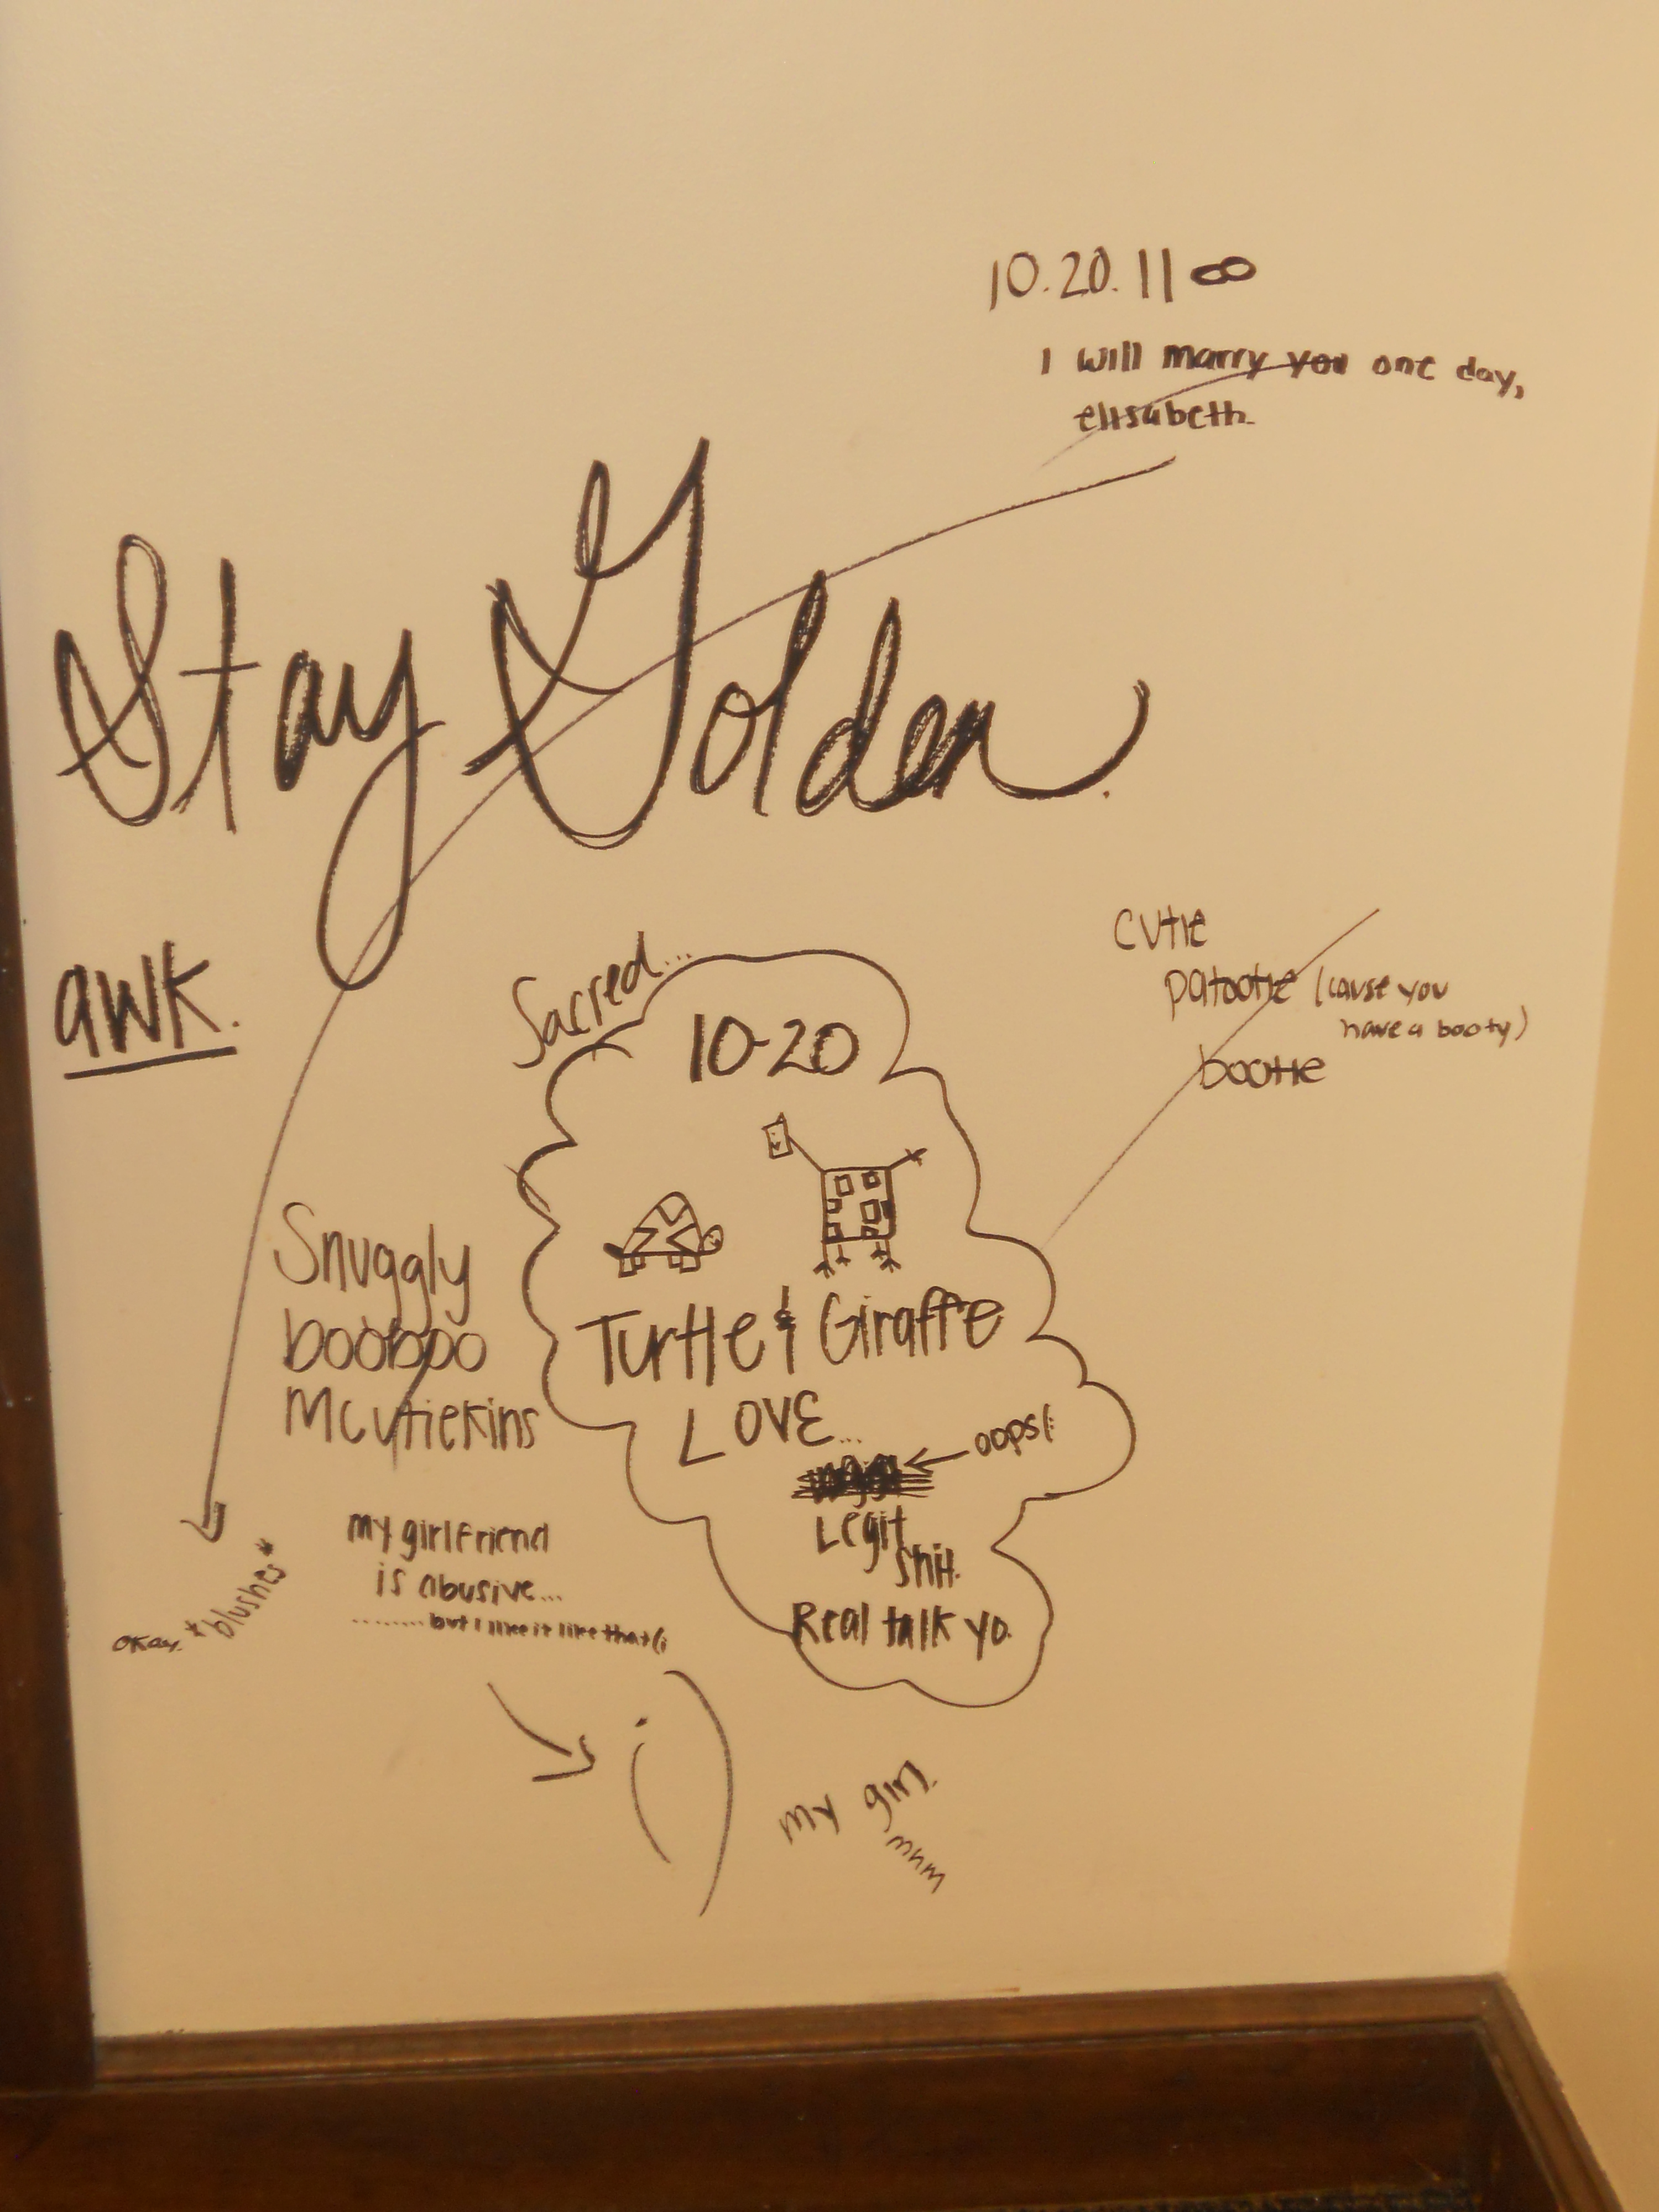 10.20.11 ∞
I will marry you one day,
elisabeth.
Stay Golden.
awk.
Sacred...
10-20
Turtle & Giraffe
LOVE...
oops(:
Legit
shit.
Real talk yo.
cutie
patootie (cause you
have a booty)
bootie
Snuggly
booboo
Mcutiekins
okay. *blushes*
my girlfriend
is abusive...
........ but I like it like that(;
;)
my girl.
mhm